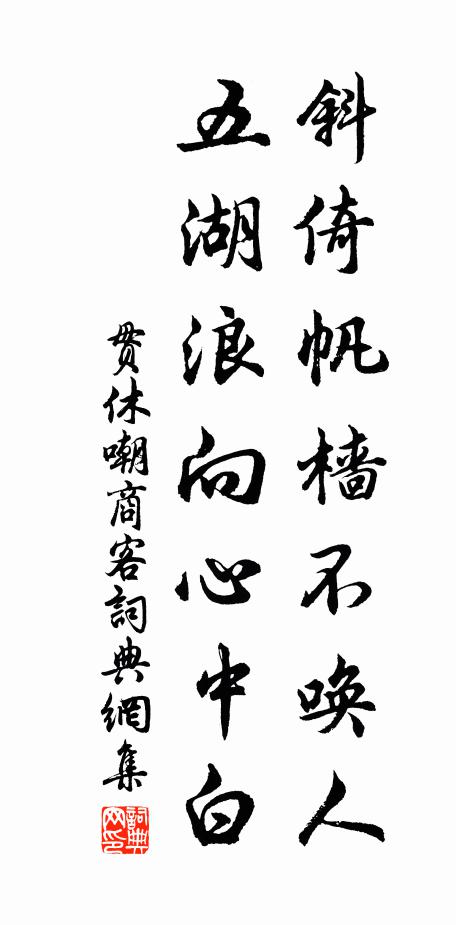 斜倚帆檣不喚人
五湖浪向心中白
贯休嘲商客詞典網集
詞典网印